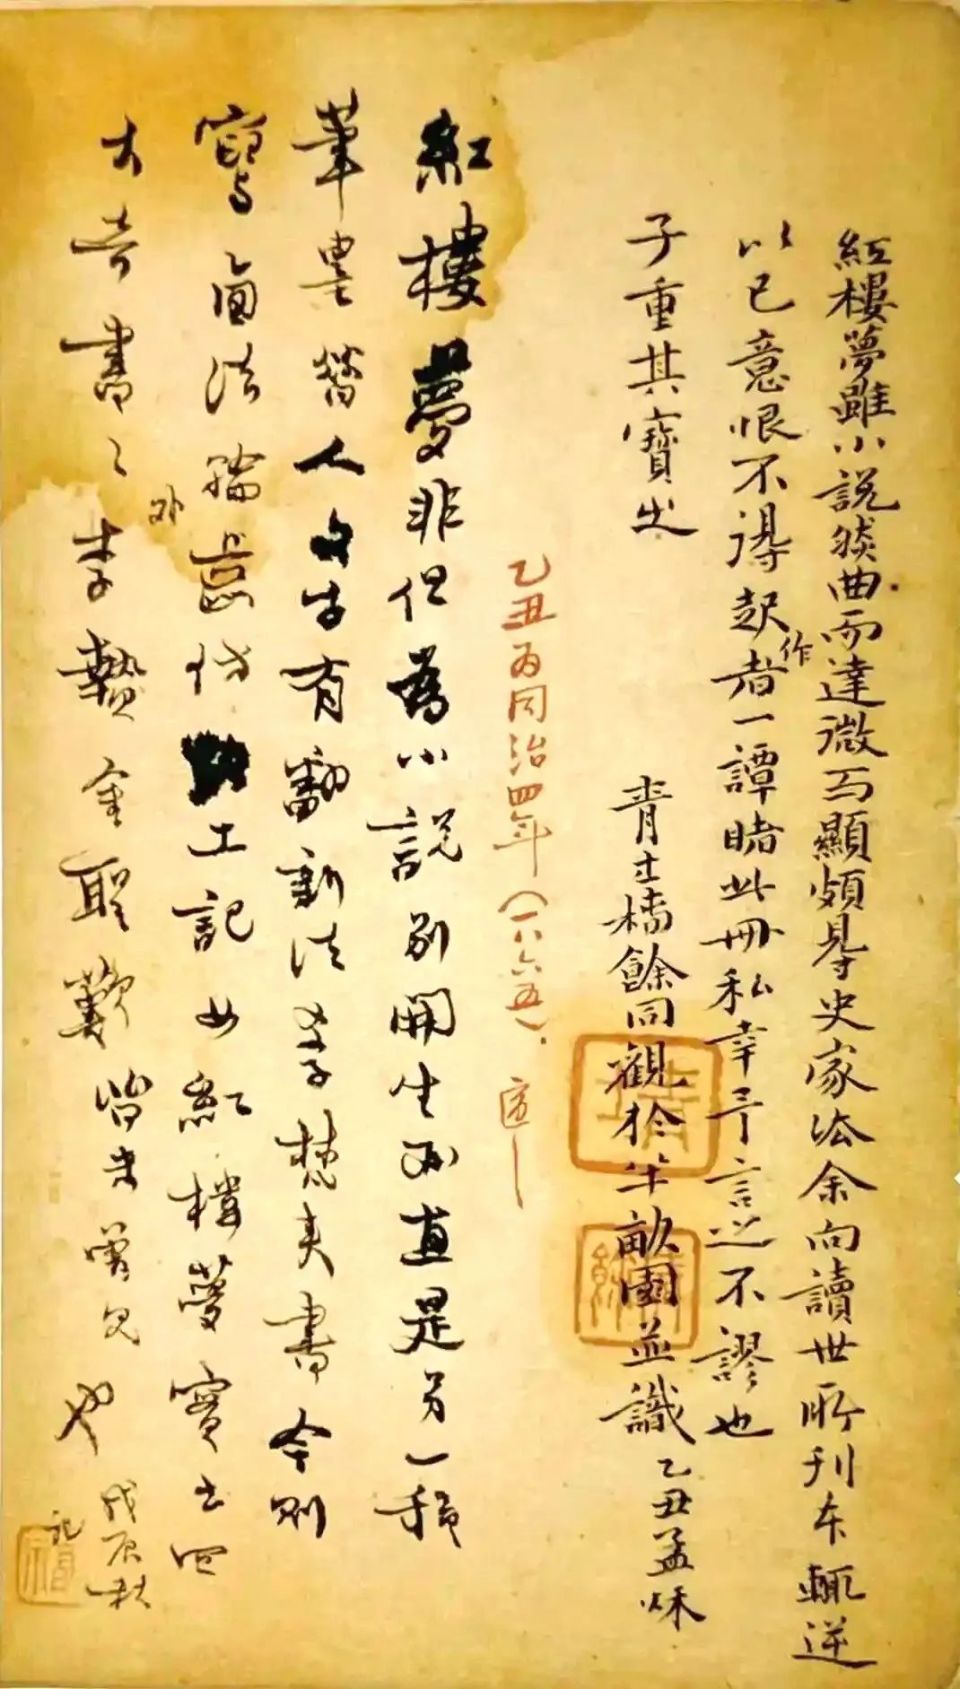 紅樓夢雖小說然曲而達微而顯頗得史家法余向讀世所刊本輒逆
以己意恨不得起作者一譚睹此冊私幸予言之不謬也
子重其寶之
青士椿餘同觀於半畝園並識乙丑孟秋
乙丑為同治四年(一八六五).適
紅樓夢非但為小說別開生面直是另一種
筆墨昔人文字有翻新法學梵夾書今則
寫西法輪齒仿考工記如紅樓夢實出四
大奇書之外李贄金聖歎皆未曾見也戊辰秋
記